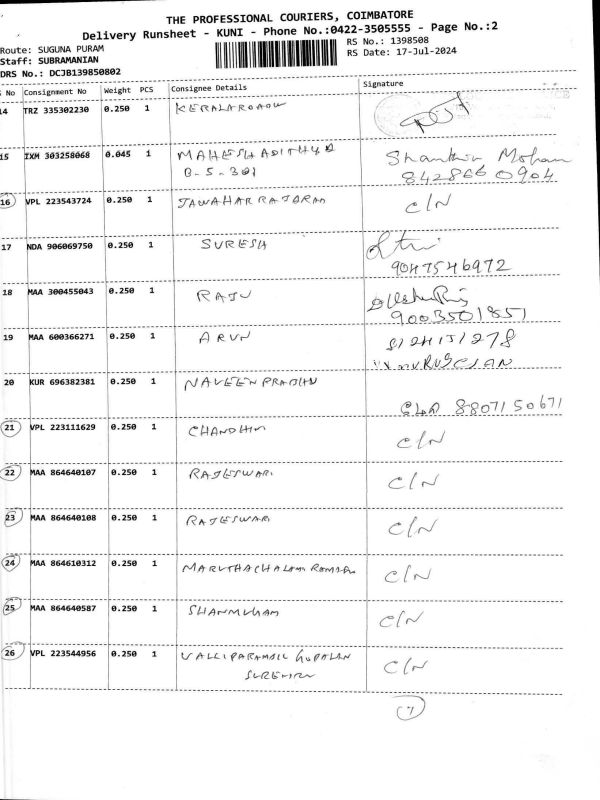 THE PROFESSIONAL COURIERS, COIMBATORE
Delivery Runsheet - KUNI - Phone No.:0422-3505555 - Page No.:2
Route: SUGUNA PURAM
RS No.: 1398508
Staff: SUBRAMANIAN
RS Date: 17-Jul-2024
DRS No.: DCJB139850802
No Consignment No Weight PCS Consignee Details Signature
14 TRZ 335302230 0.250 1
15 IXM 303258068 0.045 1 MAHESH ADITHYA Mohan
B-5-301 842866 0904
16 VPL 223543724 0.250 1 JAWAHAR RAJARAM C/N
17 NDA 906069750 0.250 1 SURESH
9047546972
18 MAA 300455043 0.250 1 RAJU
9003501851
19 MAA 600366271 0.250 1 ARUN
20 KUR 696382381 0.250 1 NAVEEN PRADHAN
8807150671
21 VPL 223111629 0.250 1 C/N
22 MAA 864640107 0.250 1 RAJESWARI C/N
23 MAA 864640108 0.250 1 RAJESWARI C/N
24 MAA 864610312 0.250 1 C/N
25 MAA 864640587 0.250 1 SHANMUGAM C/N
26 VPL 223544956 0.250 1 VALLIPARAMBIL GOPALAN C/N
(7)